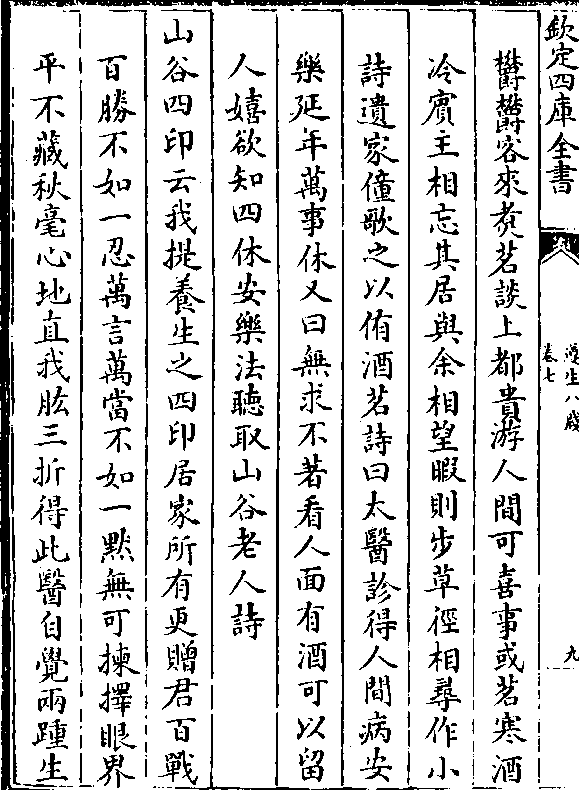 欽定四庫全書
遵生八牋
卷七
九
欝欝客來煮茗談上都貴游人間可喜事或茗寒酒
冷賓主相忘其居與余相望暇則步草徑相尋作小
詩遺家僮歌之以侑酒茗詩曰太醫診得人間病安
樂延年萬事休又曰無求不著看人面有酒可以留
人嬉欲知四休安樂法聽取山谷老人詩
山谷四印云我提養生之四印居家所有更贈君百戰
百勝不如一忍萬言萬當不如一黙無可揀擇眼界
平不藏秋毫心地直我肱三折得此醫自覺兩踵生